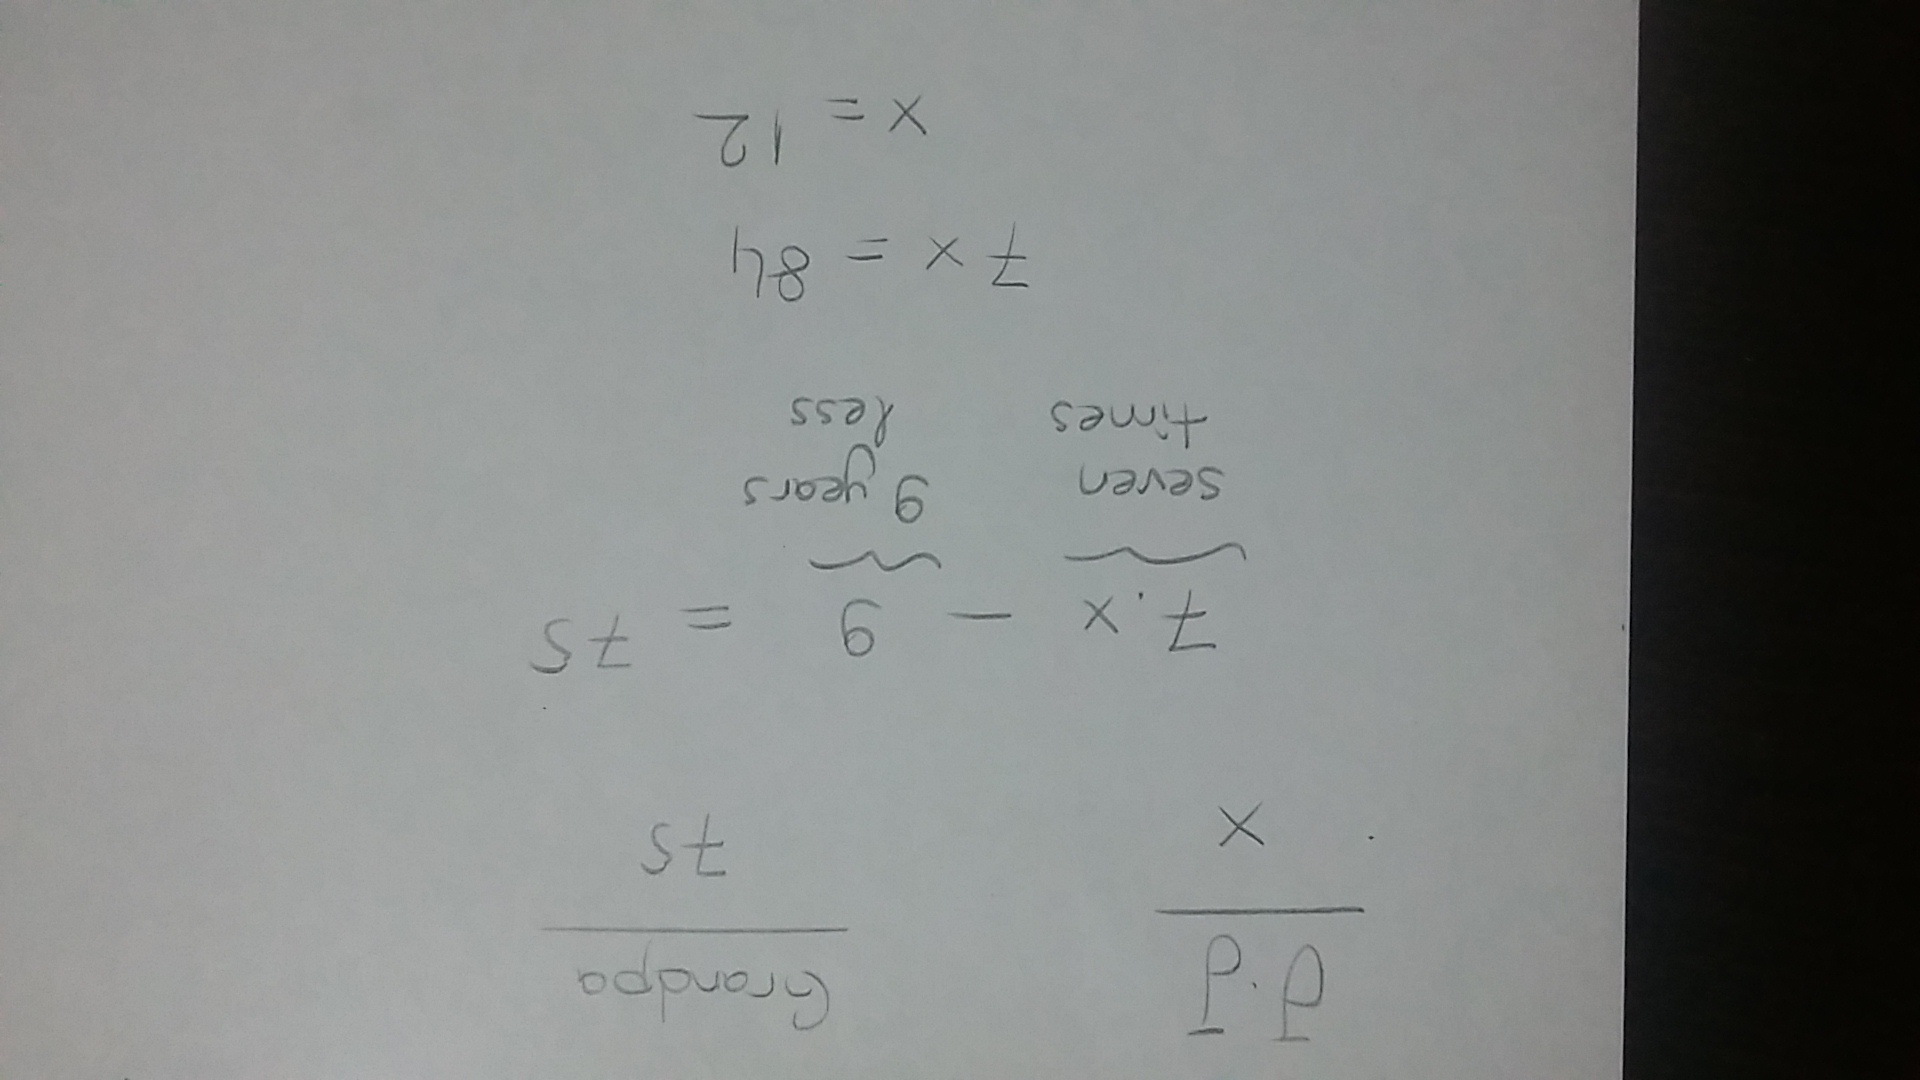 J.J Grandpa
x 75
7.x - 9 = 75
seven 9 years
times less
7x = 84
x = 12